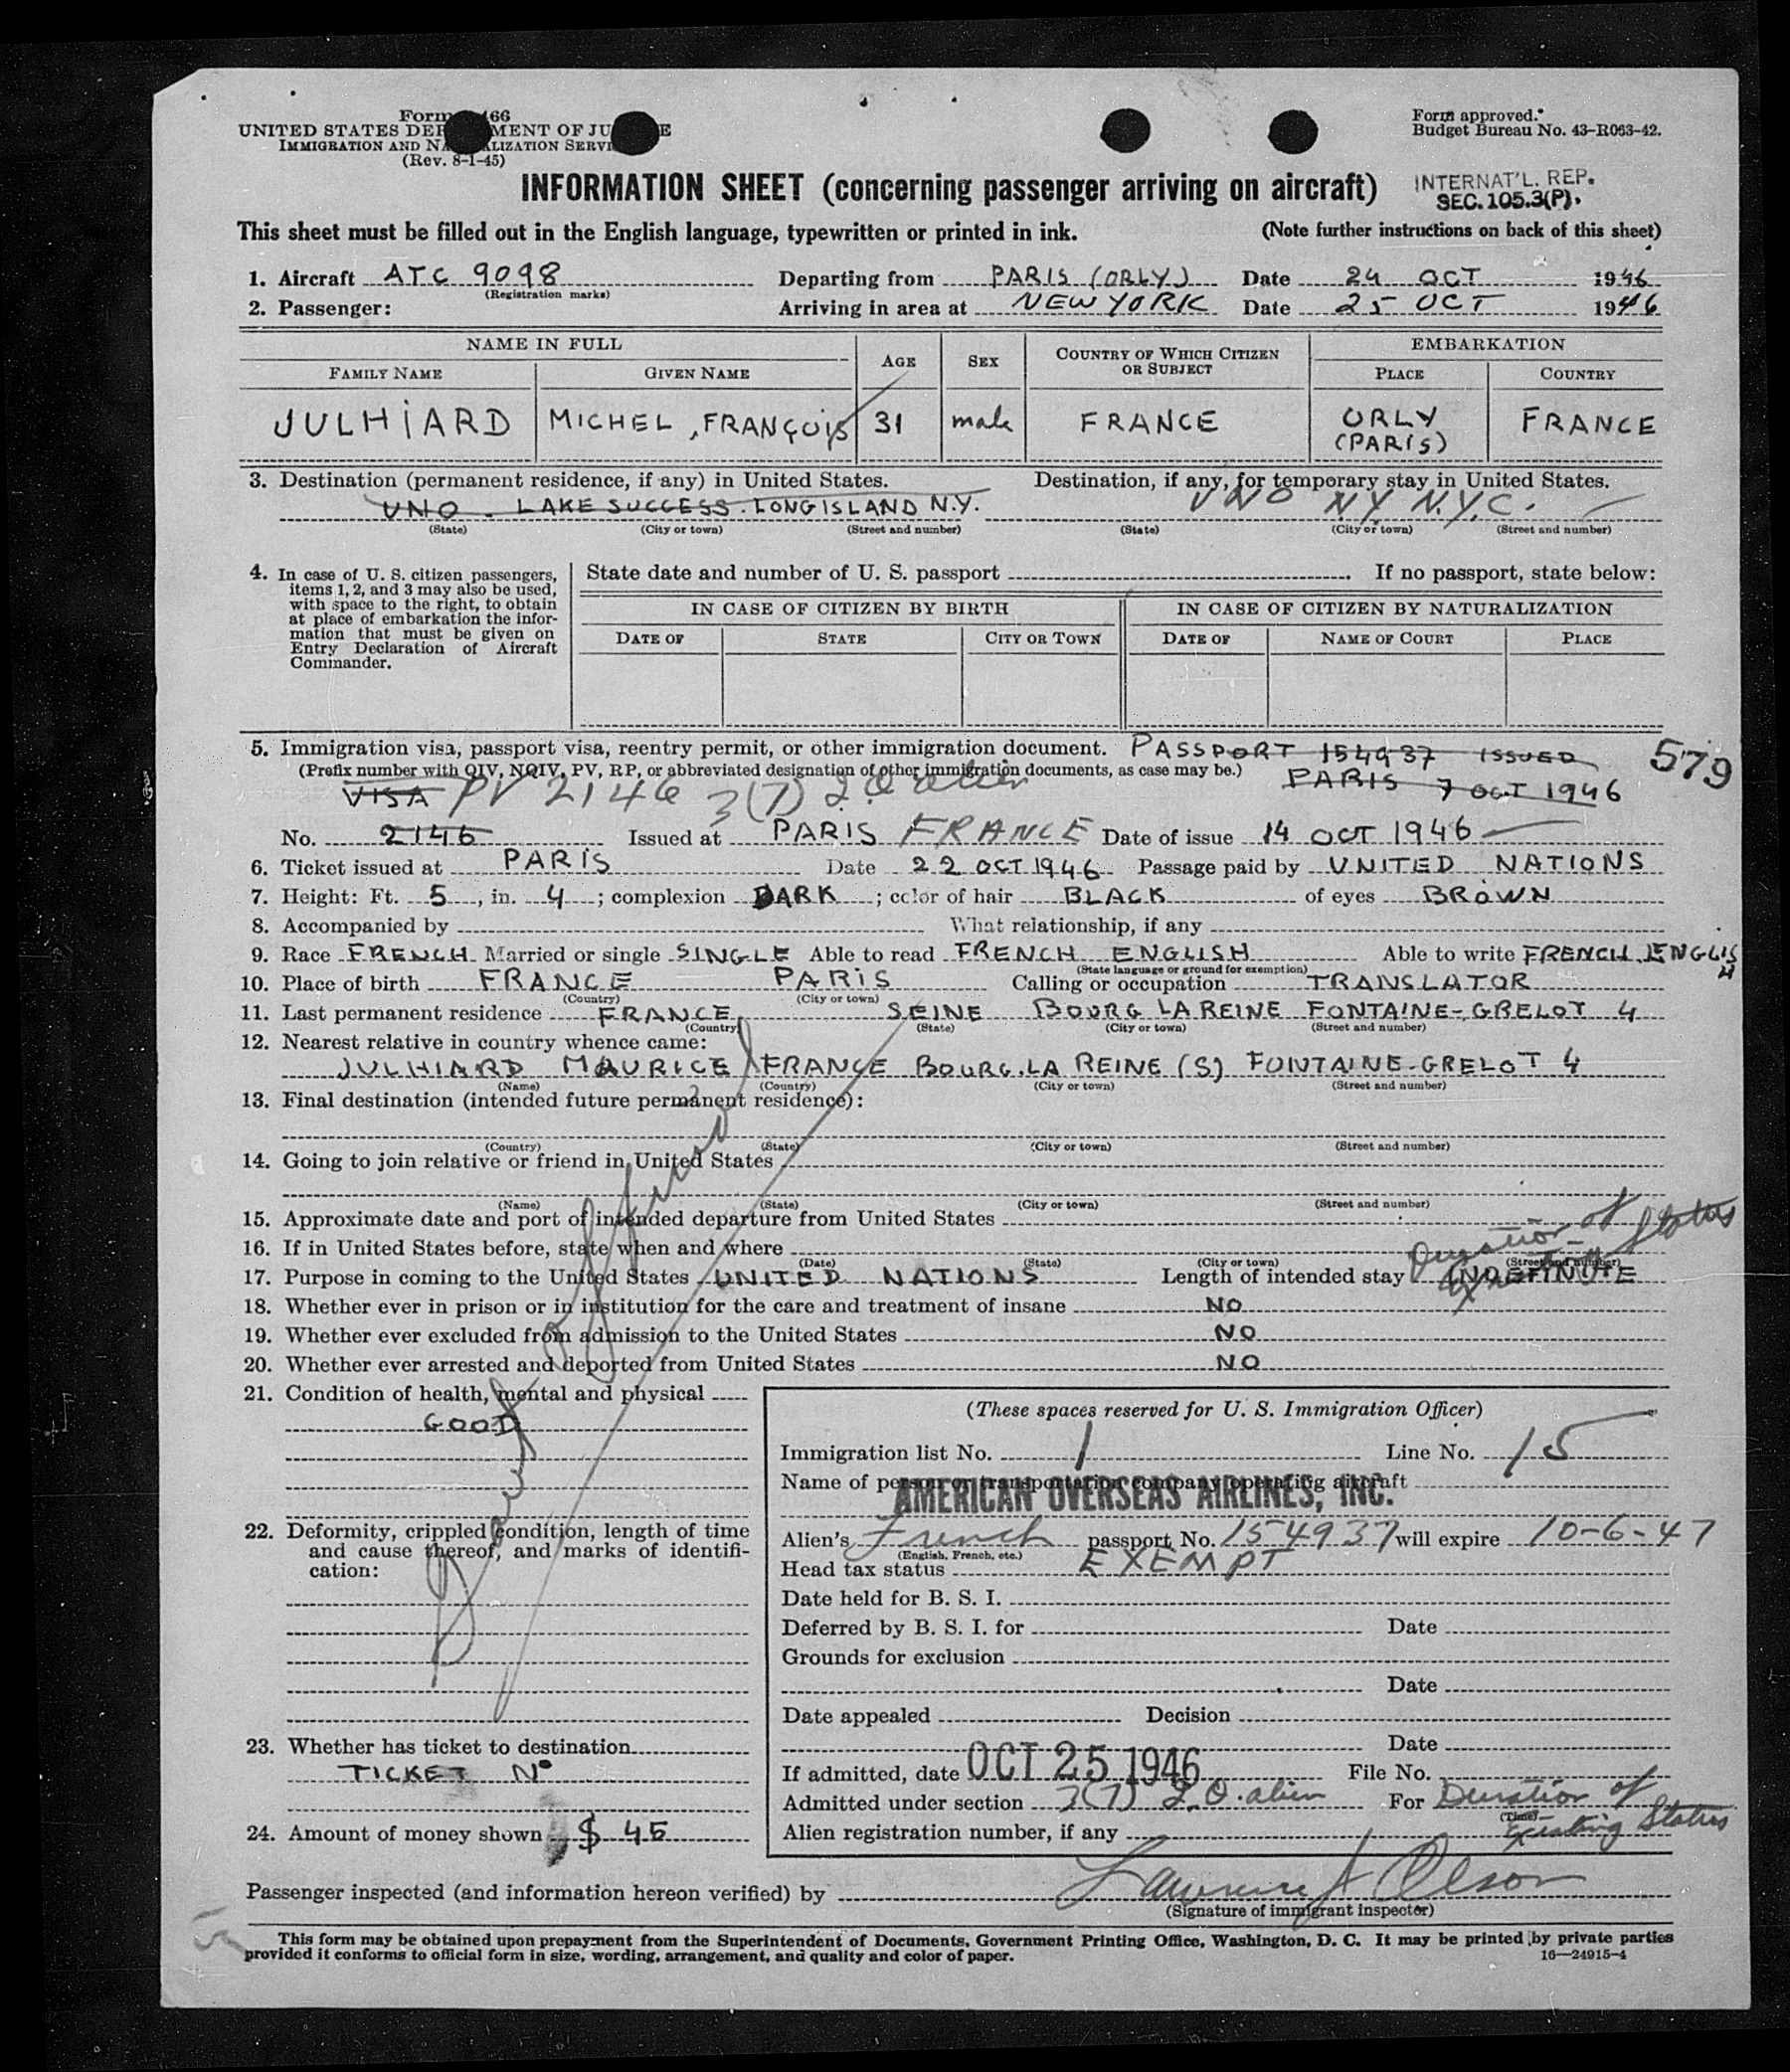 Form 466
UNITED STATES DEPARTMENT OF JUSTICE
IMMIGRATION AND NATURALIZATION SERVICE
(Rev. 8-1-45)
Form approved.
Budget Bureau No. 43-R063-42.
INFORMATION SHEET (concerning passenger arriving on aircraft)
INTERNAT'L. REP.
SEC. 105.3(P).
This sheet must be filled out in the English language, typewritten or printed in ink. (Note further instructions on back of this sheet)
1. Aircraft ATC 9098 Departing from PARIS (ORLY) Date 24 OCT 1946
(Registration marks)
2. Passenger: Arriving in area at NEW YORK Date 25 OCT 1946
NAME IN FULL AGE SEX COUNTRY OF WHICH CITIZEN OR SUBJECT EMBARKATION
FAMILY NAME GIVEN NAME PLACE COUNTRY
JULHIARD MICHEL, FRANÇOIS 31 male FRANCE ORLY (PARIS) FRANCE
3. Destination (permanent residence, if any) in United States. Destination, if any, for temporary stay in United States.
UNO. LAKE SUCCESS. LONG ISLAND N.Y. UNO N.Y. N.Y.C.
(State) (City or town) (Street and number) (State) (City or town) (Street and number)
4. In case of U. S. citizen passengers, items 1, 2, and 3 may also be used, with space to the right, to obtain at place of embarkation the information that must be given on Entry Declaration of Aircraft Commander.
State date and number of U. S. passport. If no passport, state below:
IN CASE OF CITIZEN BY BIRTH IN CASE OF CITIZEN BY NATURALIZATION
DATE OF STATE CITY OR TOWN DATE OF NAME OF COURT PLACE
5. Immigration visa, passport visa, reentry permit, or other immigration document. PASSPORT 154937 ISSUED 579
(Prefix number with QIV, NQIV, PV, RP, or abbreviated designation of other immigration documents, as case may be.) PARIS 7 OCT 1946
VISA PV 2146 3(7) I.O. alien
No. 2146 Issued at PARIS FRANCE Date of issue 14 OCT 1946
6. Ticket issued at PARIS Date 22 OCT 1946 Passage paid by UNITED NATIONS
7. Height: Ft. 5, in. 4; complexion DARK; color of hair BLACK of eyes BROWN
8. Accompanied by What relationship, if any
9. Race FRENCH Married or single SINGLE Able to read FRENCH ENGLISH Able to write FRENCH, ENGLISH
(State language or ground for exemption)
10. Place of birth FRANCE PARIS Calling or occupation TRANSLATOR
(Country) (City or town)
11. Last permanent residence FRANCE SEINE BOURG LA REINE FONTAINE-GRELOT 4
(Country) (State) (City or town) (Street and number)
12. Nearest relative in country whence came:
JULHIARD MAURICE FRANCE BOURG.LA REINE (S) FONTAINE-GRELOT 4
(Name) (Country) (City or town) (Street and number)
13. Final destination (intended future permanent residence):
(Country) (State) (City or town) (Street and number)
14. Going to join relative or friend in United States
(Name) (State) (City or town) (Street and number)
15. Approximate date and port of intended departure from United States
16. If in United States before, state when and where
(Date) (State) (City or town) (Street and number)
Duration of Existing Status
17. Purpose in coming to the United States UNITED NATIONS Length of intended stay INDEFINITE
18. Whether ever in prison or in institution for the care and treatment of insane NO
19. Whether ever excluded from admission to the United States NO
20. Whether ever arrested and deported from United States NO
21. Condition of health, mental and physical
GOOD
22. Deformity, crippled condition, length of time and cause thereof, and marks of identification:
23. Whether has ticket to destination
TICKET N°
24. Amount of money shown $ 45
(These spaces reserved for U. S. Immigration Officer)
Immigration list No. 1 Line No. 15
Name of person or transportation company operating aircraft
AMERICAN OVERSEAS AIRLINES, INC.
Alien's French passport No. 154937 will expire 10-6-47
(English, French, etc.)
Head tax status EXEMPT
Date held for B. S. I.
Deferred by B. S. I. for Date
Grounds for exclusion
Date
Date appealed Decision
Date
If admitted, date OCT 25 1946 File No.
Admitted under section 3(7) I.O. alien For Duration of
(Time)
Alien registration number, if any Existing Status
Passenger inspected (and information hereon verified) by Lawrence A Olson
(Signature of immigrant inspector)
This form may be obtained upon prepayment from the Superintendent of Documents, Government Printing Office, Washington, D. C. It may be printed by private parties
provided it conforms to official form in size, wording, arrangement, and quality and color of paper. 16—24915-4